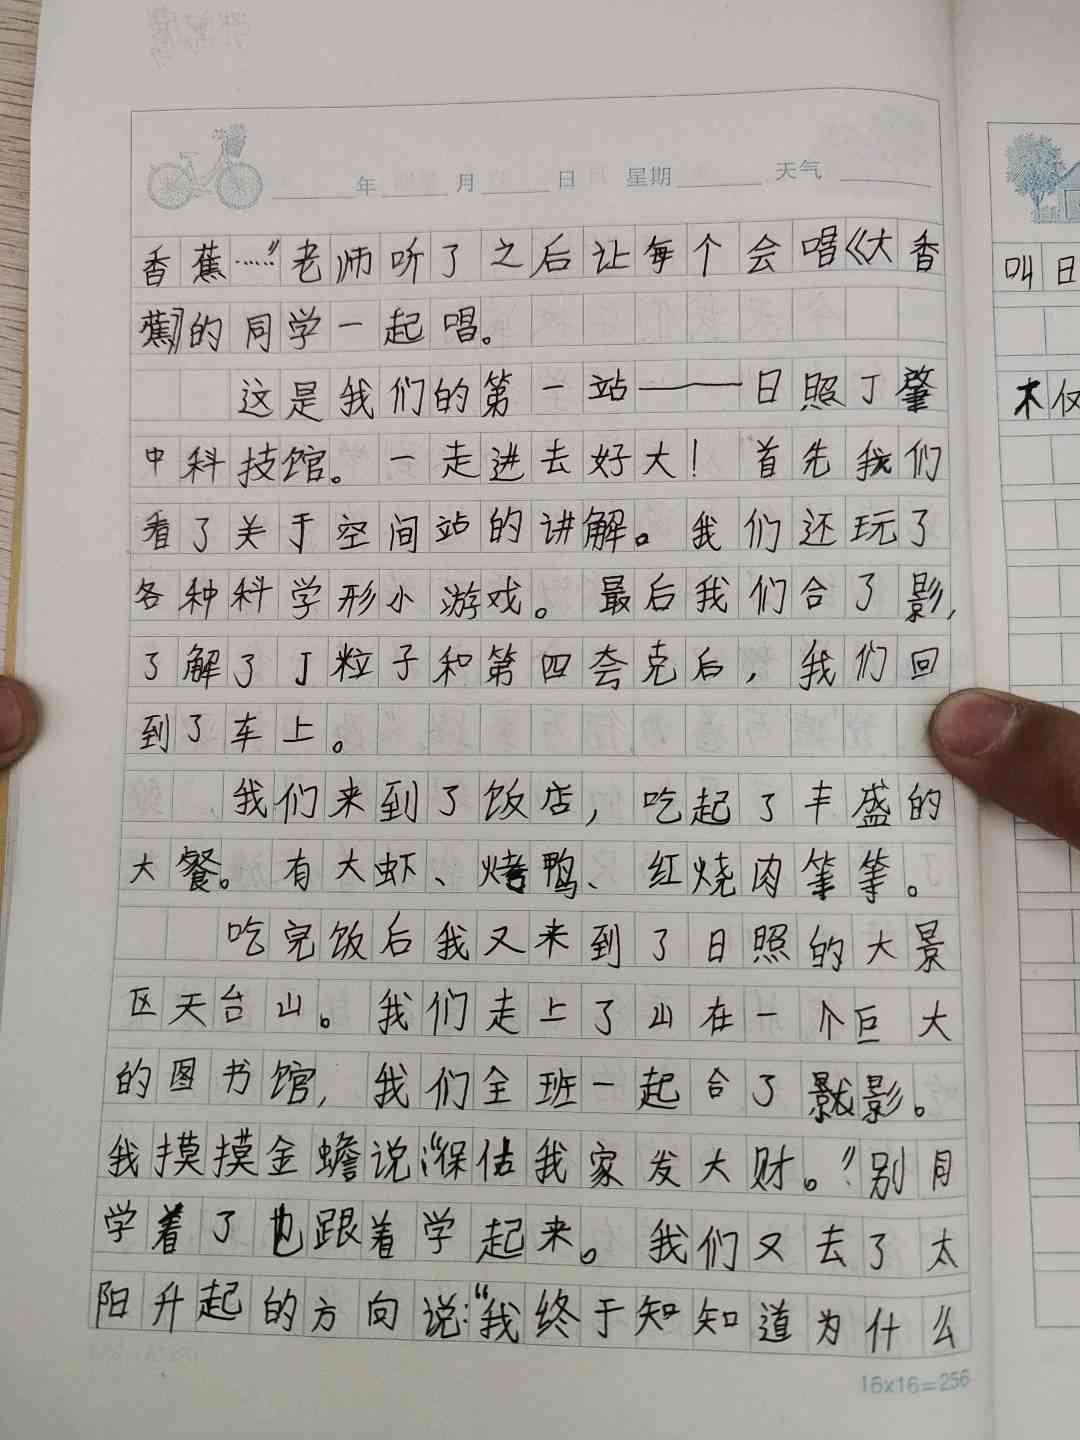 年 月 日 星期 天气
香蕉……”老师听了之后让每个会唱《大香
蕉》的同学一起唱。
这是我们的第一站——日照丁肇
中科技馆。一走进去好大！首先我们
看了关于空间站的讲解。我们还玩了
各种科学形小游戏。最后我们合了影，
了解了J粒子和第四夸克后，我们回
到了车上。
我们来到了饭店，吃起了丰盛的
大餐。有大虾、烤鸭、红烧肉等等。
吃完饭后我又来到了日照的大景
区天台山。我们走上了山在一个巨大
的图书馆，我们全班一起合了影。
我摸摸金蟾说：“保估我家发大财。”别同
学着了也跟着学起来。我们又去了太
阳升起的方向说：“我终于知知道为什么
16x16=256
叫日
木仅